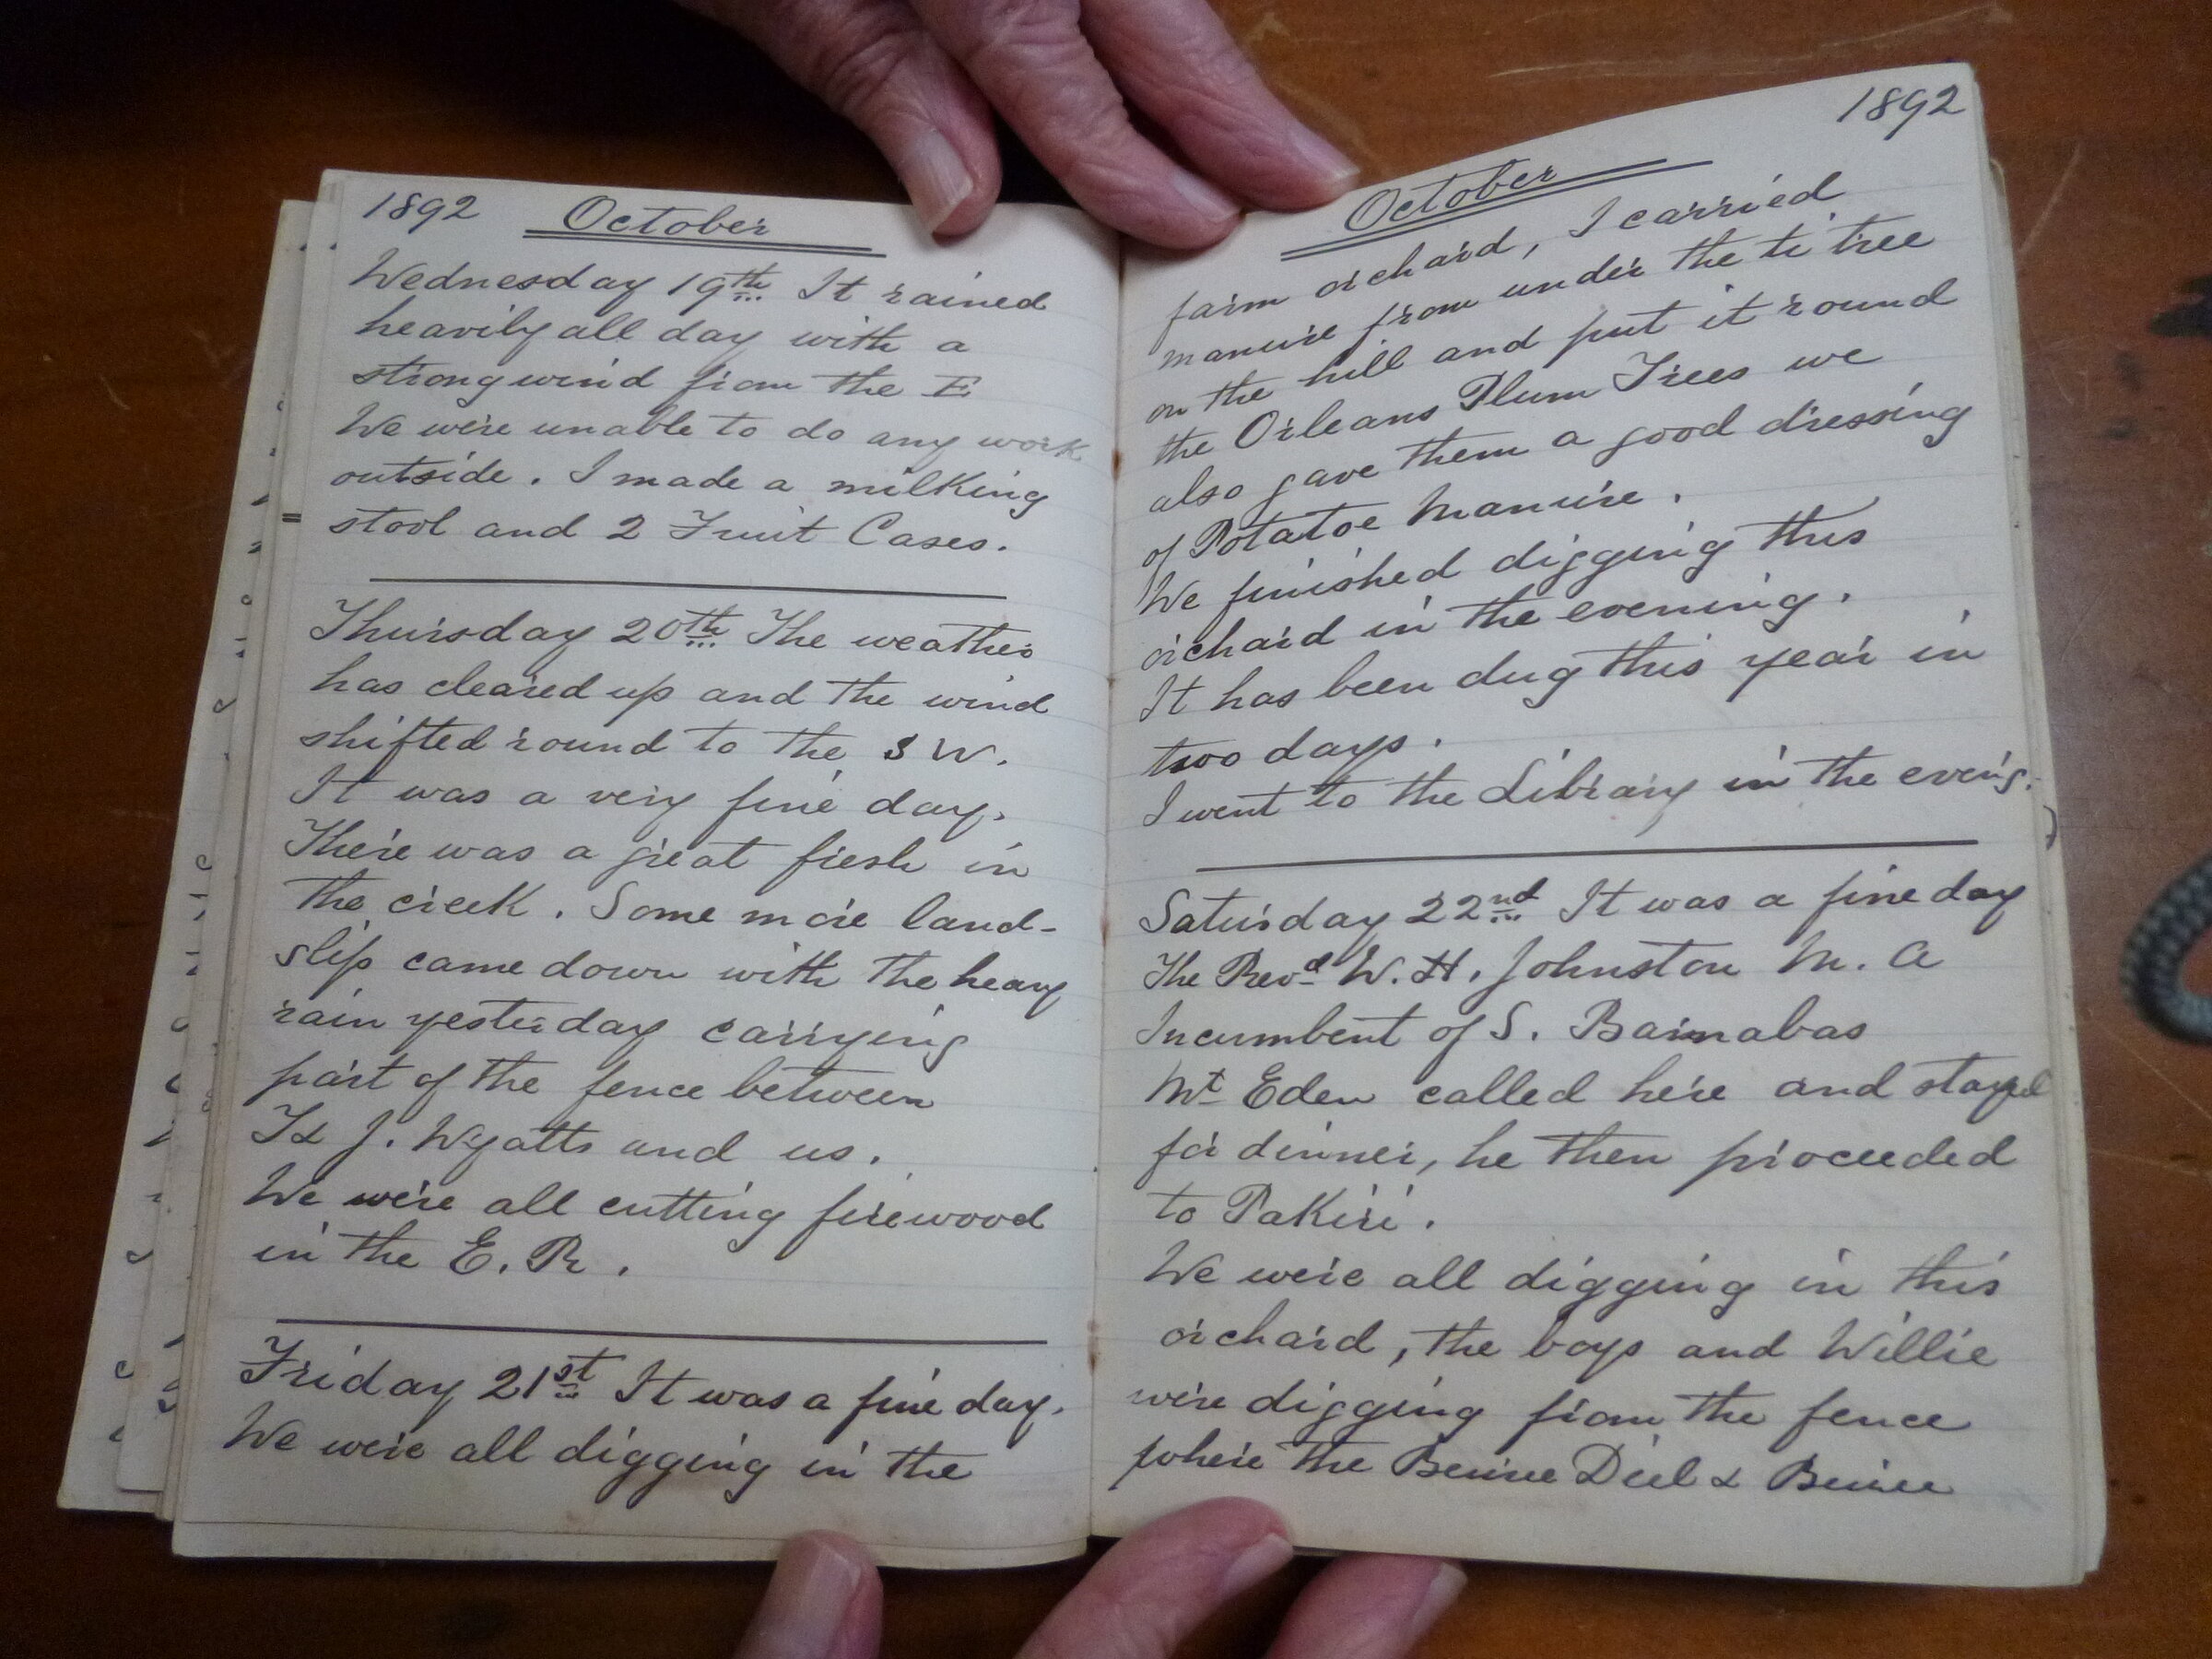 1892 October
Wednesday 19th It rained
heavily all day with a
strong wind from the E
We were unable to do any work
outside. I made a milking
stool and 2 Fruit Cases.
Thursday 20th The weather
has cleared up and the wind
shifted round to the S W.
It was a very fine day.
There was a great fresh in
the creek. Some more land-
slip came down with the heavy
rain yesterday carrying
part of the fence between
J. Wyatts and us.
We were all cutting firewood
in the E. R.
Friday 21st It was a fine day.
We were all digging in the
1892
October
farm orchard, I carried
manure from under the ti tree
on the hill and put it round
the Orleans Plum Trees we
also gave them a good dressing
of Potatoe Manure.
We finished digging this
orchard in the evening.
It has been dug this year in
two days.
I went to the Library in the eveng.
Saturday 22nd It was a fine day
The Revd W. H. Johnston M. A
Incumbent of S. Barnabas
Mt Eden called here and stayed
for dinner, he then proceeded
to Pakiri.
We were all digging in this
orchard, the boys and Willie
were digging from the fence
where the Beurre Diel & Beurre